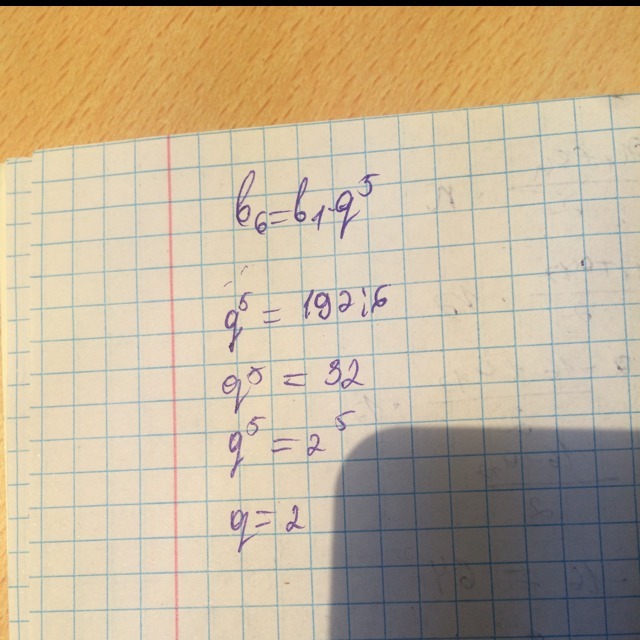 b₆=b₁·q⁵
q⁵ = 192:6
q⁵ = 32
q⁵ = 2⁵
q = 2